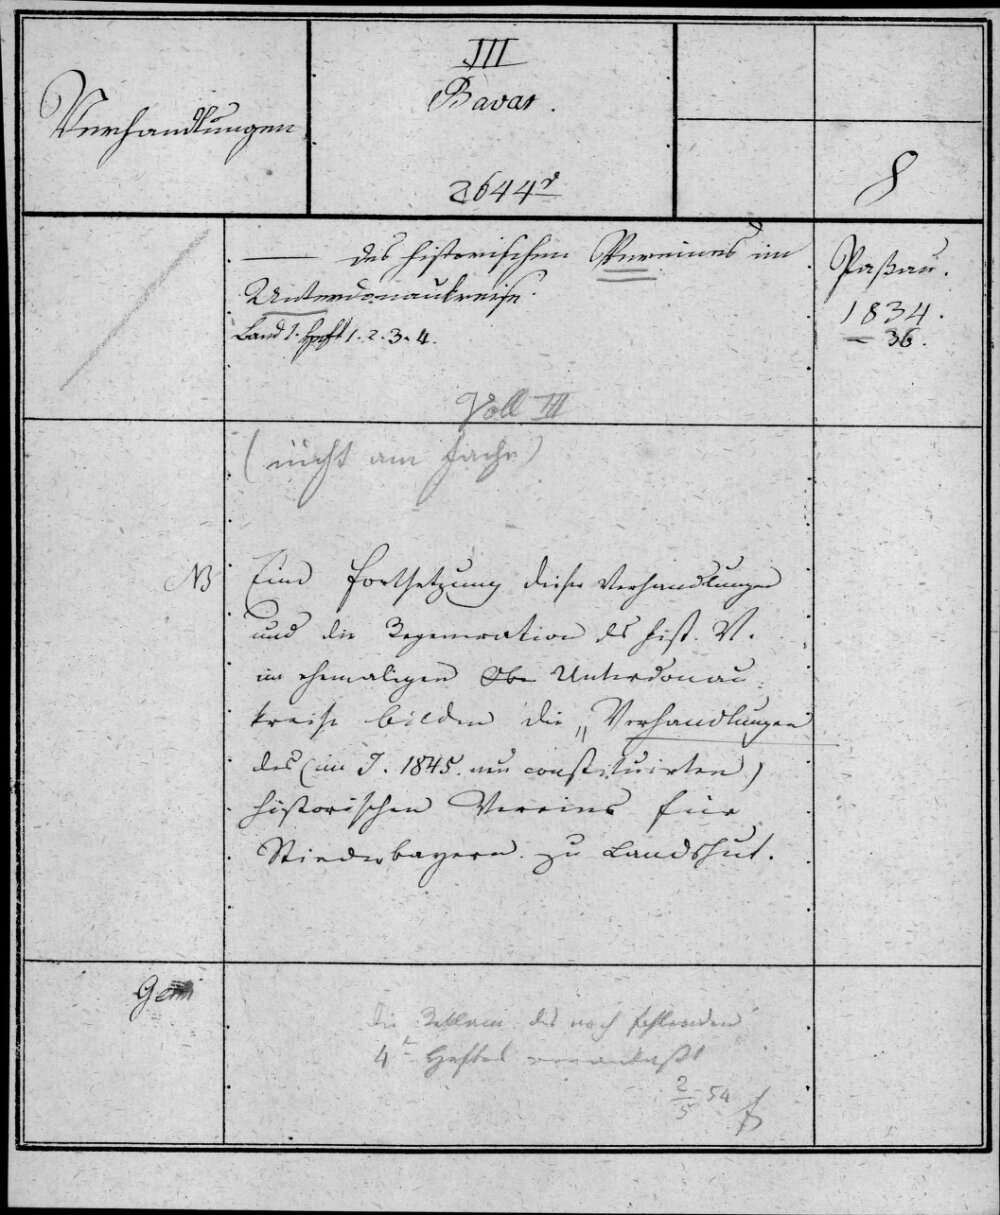 Verhandlungen
III
Bavar.
2644d
8
— des historischen Vereines im
Unterdonaukreise.
Band 1. Heft 1. 2. 3. 4.
Paßau.
1834.
— 36.
Voll III
(nicht am Fache)
NB
Eine Fortsetzung dieser Verhandlungen
und die Regeneration des hist. V.
im ehemaligen Obe Unterdonau
kreise bilden die „Verhandlungen
des (im J. 1845. neu constituirten)
historischen Vereins für
Niederbayern zu Landshut.
Die des noch fehlenden
4t Heftes veranlaßt
2/5 54